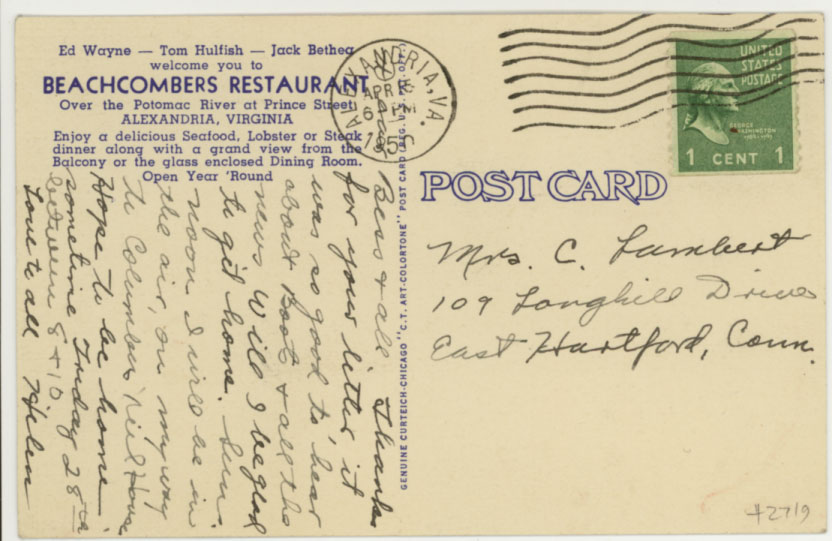 Ed Wayne — Tom Hulfish — Jack Bethea
welcome you to
BEACHCOMBERS RESTAURANT
Over the Potomac River at Prince Street
ALEXANDRIA, VIRGINIA
Enjoy a delicious Seafood, Lobster or Steak
dinner along with a grand view from the
Balcony or the glass enclosed Dining Room.
Open Year 'Round
ALEXANDRIA, VA.
APR
6 PM
1950
UNITED
STATES
POSTAGE
GEORGE
WASHINGTON
1 CENT 1
POST CARD
GENUINE CURTEICH-CHICAGO "C.T. ART-COLORTONE" POST CARD (REG. U.S. PAT. OFF.)
Mrs. C. Lambert
109 Longhill Drive
East Hartford, Conn.
Bess & all Thanks
for your letter it
was so good to hear
about Boots & all the
news Will I be glad
to get home. Sun.
noon I will be in
the air, on my way
to Columbus, Neil House
Hope to be home
sometime Friday 28th
between 8 & 10
Love to all Helen
#2719